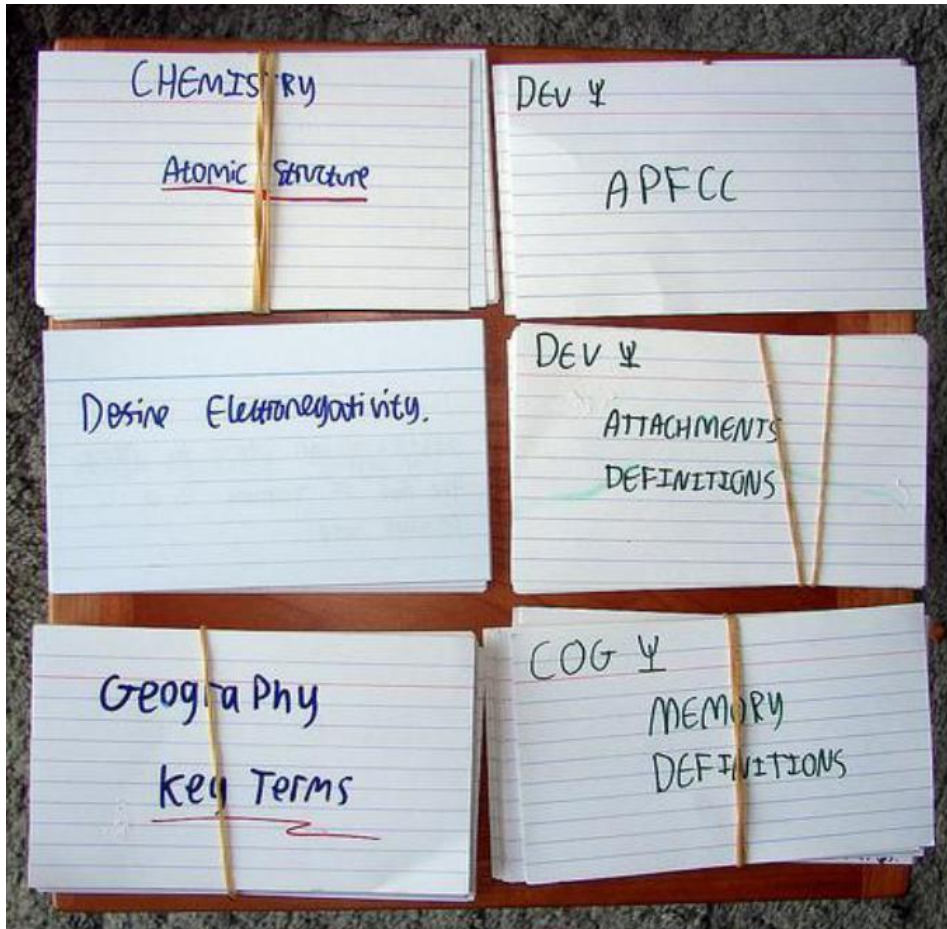 CHEMISTRY
Atomic Structure
DEV Ψ
APFCC
Define Electronegativity.
DEV Ψ
ATTACHMENTS
DEFINITIONS
Geography
Key Terms
COG Ψ
MEMORY
DEFINITIONS